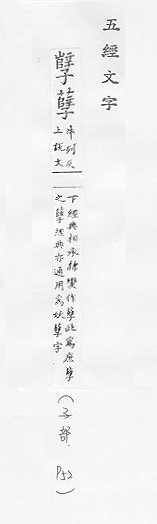 五經文字
孼孽牛列反
上說文
下經典相承隸變作孽此為庶孽
之孽經典亦通用為妖孽字
(子部 P52)